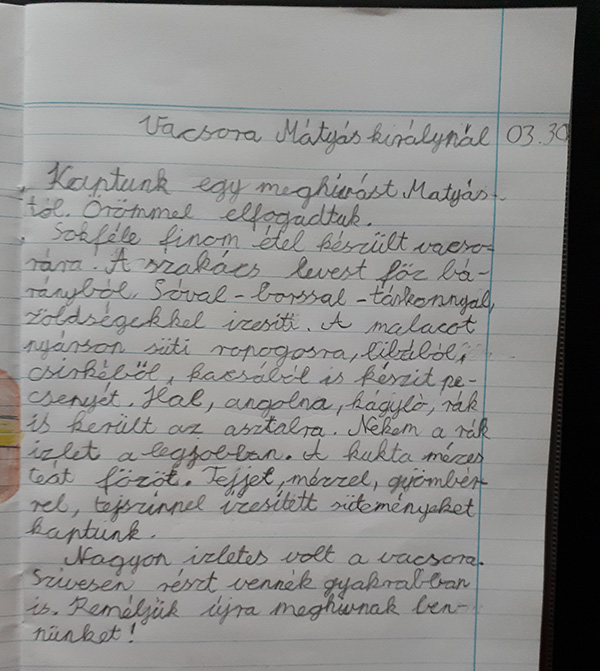 Vacsora Mátyás királynál 03.30
Kaptunk egy meghívást Matyás-
tól. Örömmel elfogadtuk.
Sokféle finom étel készült vacso-
rára. A szakács levest főz bá-
rányból. Sóval-borssal-tárkonnyal,
zöldségekkel izesiti. A malacot
nyárson süti ropogosra, libából,
csirkéből, kacsából is készit pe-
csenyét. Hal, angolna, kágyló, rák
is került az asztalra. Nekem a rák
izlet a legjobban. A kukta mézes
teát főzöt. Tejjet, mézzel, gyömbér-
rel, tejszinnel izesített süteményeket
kaptunk.
Nagyon izletes volt a vacsora.
Szivesen részt vennék gyakrabban
is. Reméljük újra meghivnak ben-
nünket!